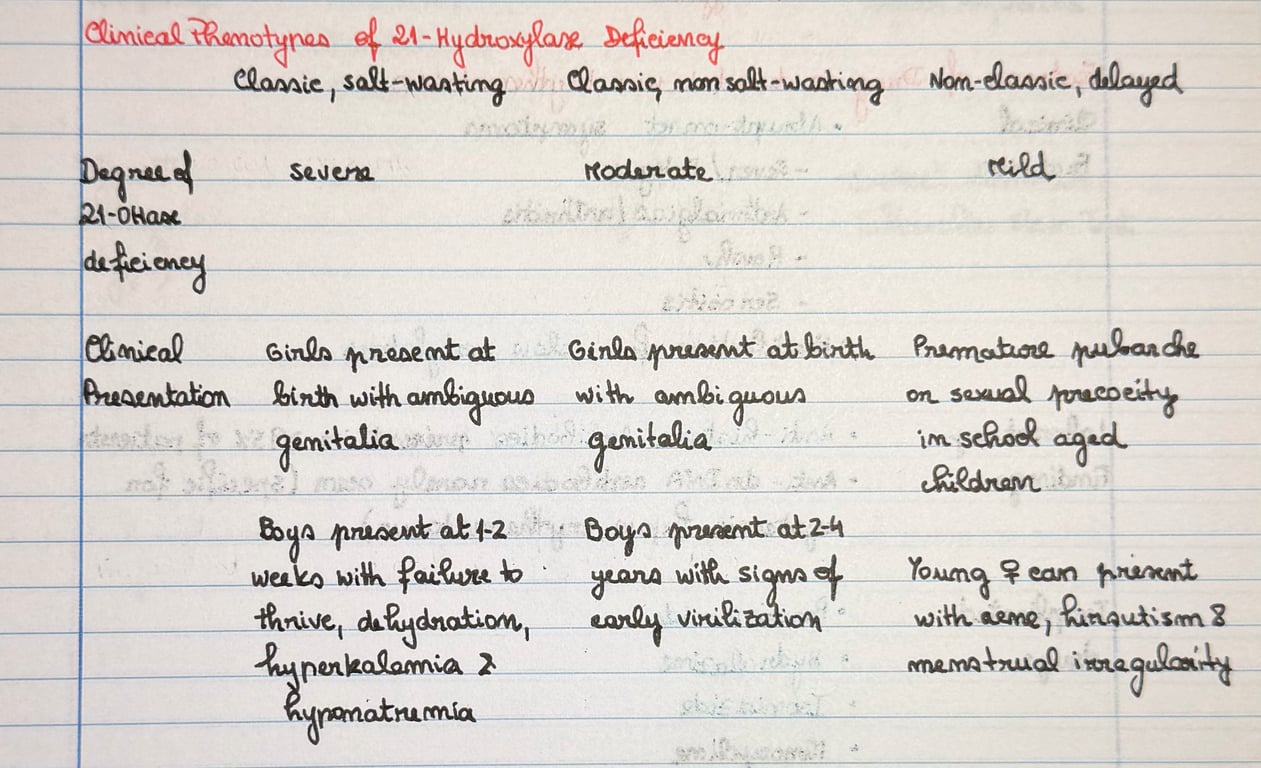 Clinical Phenotypes of 21-Hydroxylase Deficiency
Classic, salt-wasting Classic, non salt-wasting Non-classic, delayed
Degree of severe Moderate Mild
21-OHase
deficiency
Clinical Girls present at Girls present at birth Premature pubarche
Presentation birth with ambiguous with ambiguous or sexual precocity
genitalia genitalia in school aged
children
Boys present at 1-2 Boys present at 2-4
weeks with failure to years with signs of Young ♀ can present
thrive, dehydration, early virilization with acne, hirsutism &
hyperkalemia & menstrual irregularity
hyponatremia